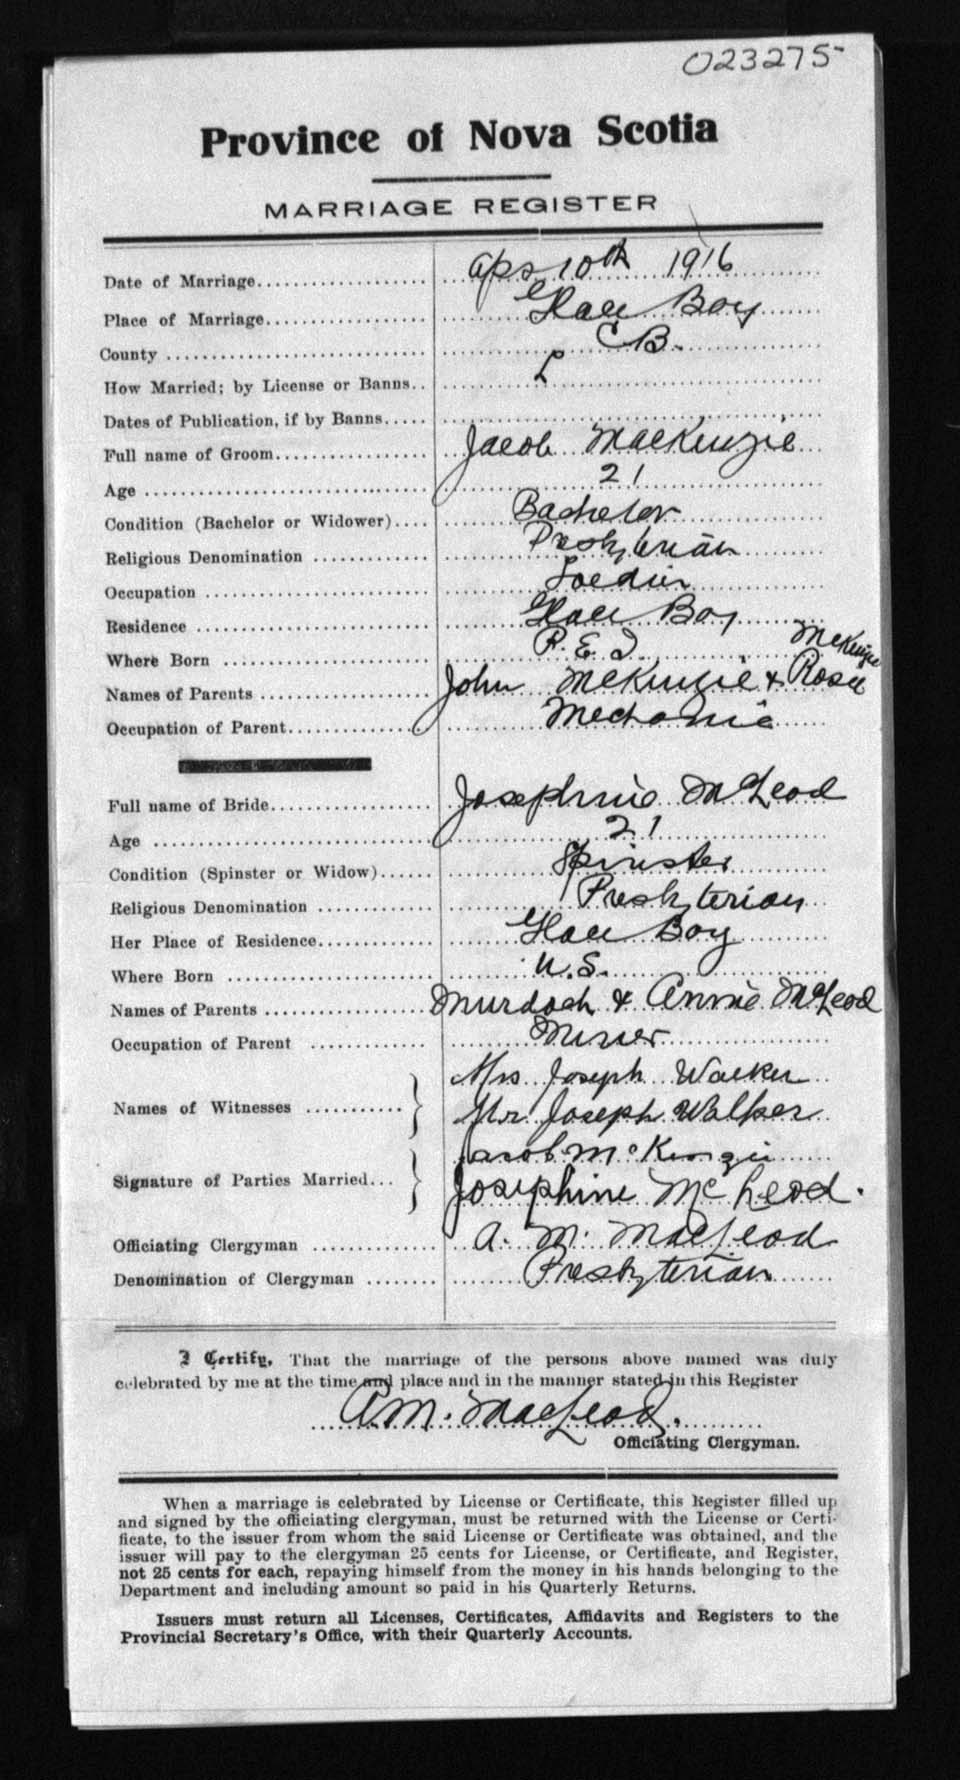 023275
Province of Nova Scotia
MARRIAGE REGISTER
Date of Marriage Apr 10th 1916
Place of Marriage Glace Bay
County C B.
How Married; by License or Banns L
Dates of Publication, if by Banns
Full name of Groom Jacob MacKenzie
Age 21
Condition (Bachelor or Widower) Bachelor
Religious Denomination Presbyterian
Occupation Soldier
Residence Glace Bay
Where Born P. E. I.
Names of Parents John McKenzie & Rosie McKenzie
Occupation of Parent Mechanic
Full name of Bride Josephine McLeod
Age 21
Condition (Spinster or Widow) Spinster
Religious Denomination Presbyterian
Her Place of Residence Glace Bay
Where Born U.S.
Names of Parents Murdoch & Annie McLeod
Occupation of Parent Miner
Names of Witnesses Mrs Joseph Walker
Mr Joseph Walker
Signature of Parties Married Jacob McKenzie
Josephine McLeod.
Officiating Clergyman A. M. MacLeod
Denomination of Clergyman Presbyterian
I Certify, That the marriage of the persons above named was duly
celebrated by me at the time and place and in the manner stated in this Register
A.M. MacLeod.
Officiating Clergyman.
When a marriage is celebrated by License or Certificate, this Register filled up
and signed by the officiating clergyman, must be returned with the License or Certi-
ficate, to the issuer from whom the said License or Certificate was obtained, and the
issuer will pay to the clergyman 25 cents for License, or Certificate, and Register,
not 25 cents for each, repaying himself from the money in his hands belonging to the
Department and including amount so paid in his Quarterly Returns.
Issuers must return all Licenses, Certificates, Affidavits and Registers to the
Provincial Secretary's Office, with their Quarterly Accounts.